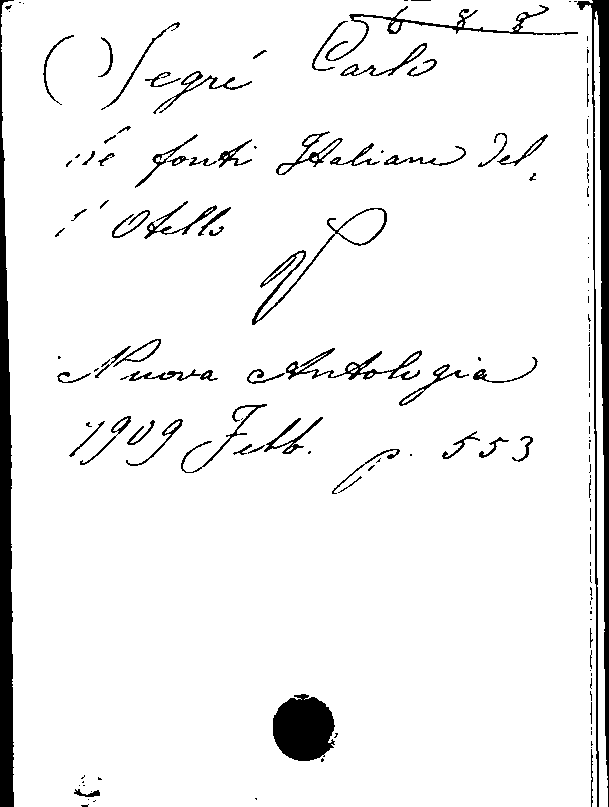 6 8. 8
( ) Segré Carlo
fonti Italiane del,
l' Otello
Nuova Antologia
1909 Febb. p. 553